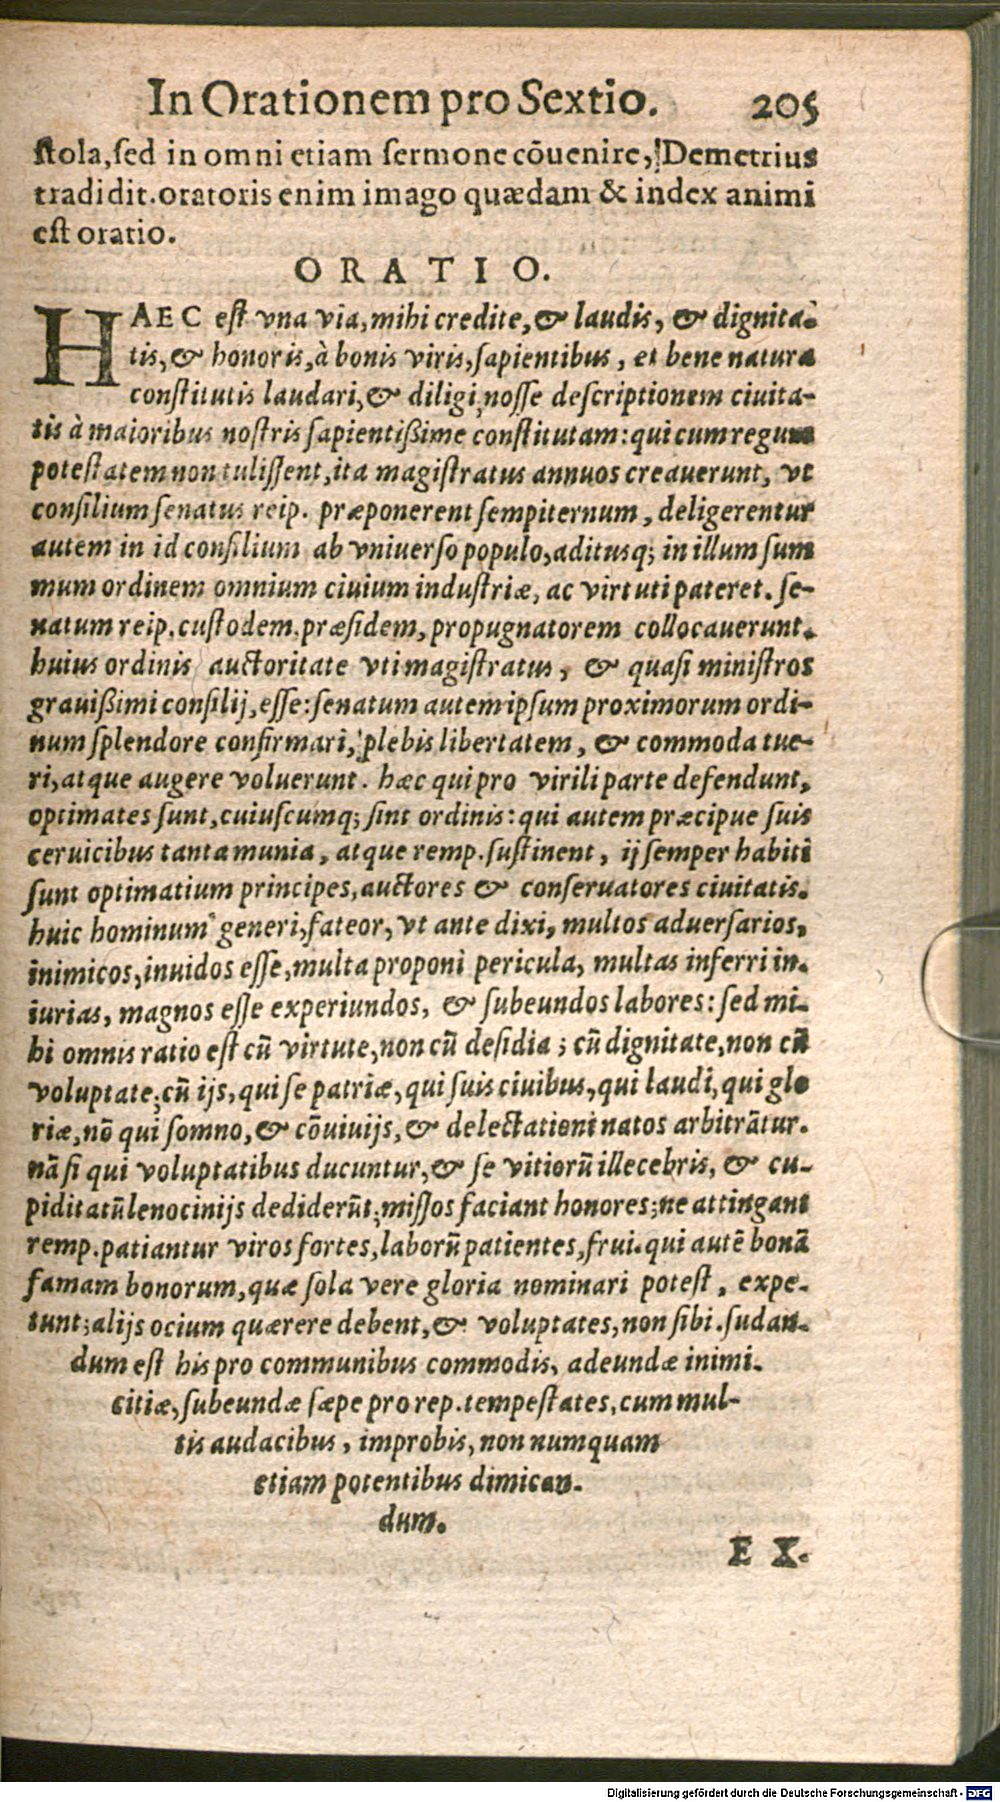 In Orationem pro Sextio. 205
stola, sed in omni etiam sermone cōuenire, Demetrius
tradidit. oratoris enim imago quædam & index animi
est oratio.
ORATIO.
HAEC est vna via, mihi credite, & laudis, & dignita-
tis, & honoris, à bonis viris, sapientibus, et bene natura
constitutis laudari, & diligi, nosse descriptionem ciuita-
tis à maioribus nostris sapientißime constitutam: qui cum regum
potestatem non tulissent, ita magistratus annuos creauerunt, vt
consilium senatus reip. præponerent sempiternum, deligerentur
autem in id consilium ab vniuerso populo, aditusq; in illum sum
mum ordinem omnium ciuium industriæ, ac virtuti pateret. se-
natum reip. custodem, præsidem, propugnatorem collocauerunt.
huius ordinis auctoritate vti magistratus, & quasi ministros
grauißimi consilij, esse: senatum autem ipsum proximorum ordi-
num splendore confirmari, plebis libertatem, & commoda tue-
ri, atque augere voluerunt. hæc qui pro virili parte defendunt,
optimates sunt, cuiuscumq; sint ordinis: qui autem præcipue suis
ceruicibus tanta munia, atque remp. sustinent, ij semper habiti
sunt optimatium principes, auctores & conseruatores ciuitatis.
huic hominum generi, fateor, vt ante dixi, multos aduersarios,
inimicos, inuidos esse, multa proponi pericula, multas inferri in-
iurias, magnos esse experiundos, & subeundos labores: sed mi-
hi omnis ratio est cū virtute, non cū desidia; cū dignitate, non cū
voluptate; cū ijs, qui se patriæ, qui suis ciuibus, qui laudi, qui glo
riæ, nō qui somno, & cōuiuijs, & delectationi natos arbitrātur.
nā si qui voluptatibus ducuntur, & se vitiorū illecebris, & cu-
piditatū lenocinijs dediderūt; missos faciant honores; ne attingant
remp. patiantur viros fortes, laborū patientes, frui. qui autē bonā
famam bonorum, quæ sola vere gloria nominari potest, expe-
tunt; alijs ocium quærere debent, & voluptates, non sibi. sudan-
dum est his pro communibus commodis, adeundæ inimi-
citiæ, subeundæ sæpe pro rep. tempestates, cum mul-
tis audacibus, improbis, non numquam
etiam potentibus dimican-
dum.
EX-
Digitalisierung gefördert durch die Deutsche Forschungsgemeinschaft - DFG